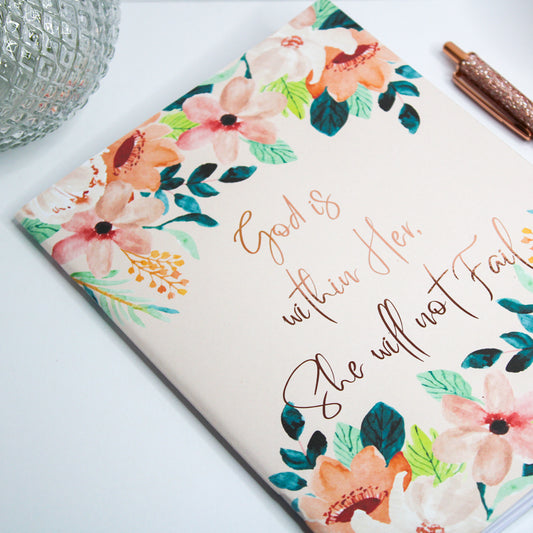 God is
within Her,
She will not Fail